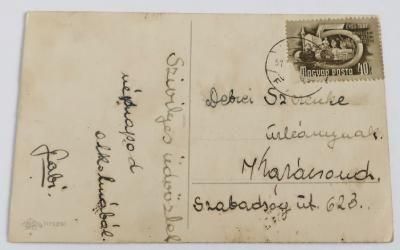 Szívélyes üdvözlet
névnapod
alkalmából.
Gabi.
MAGYAR POSTA 40f
57
Debrei Sz
úrleánynak.
Karácsond.
Szabadság út. 623.